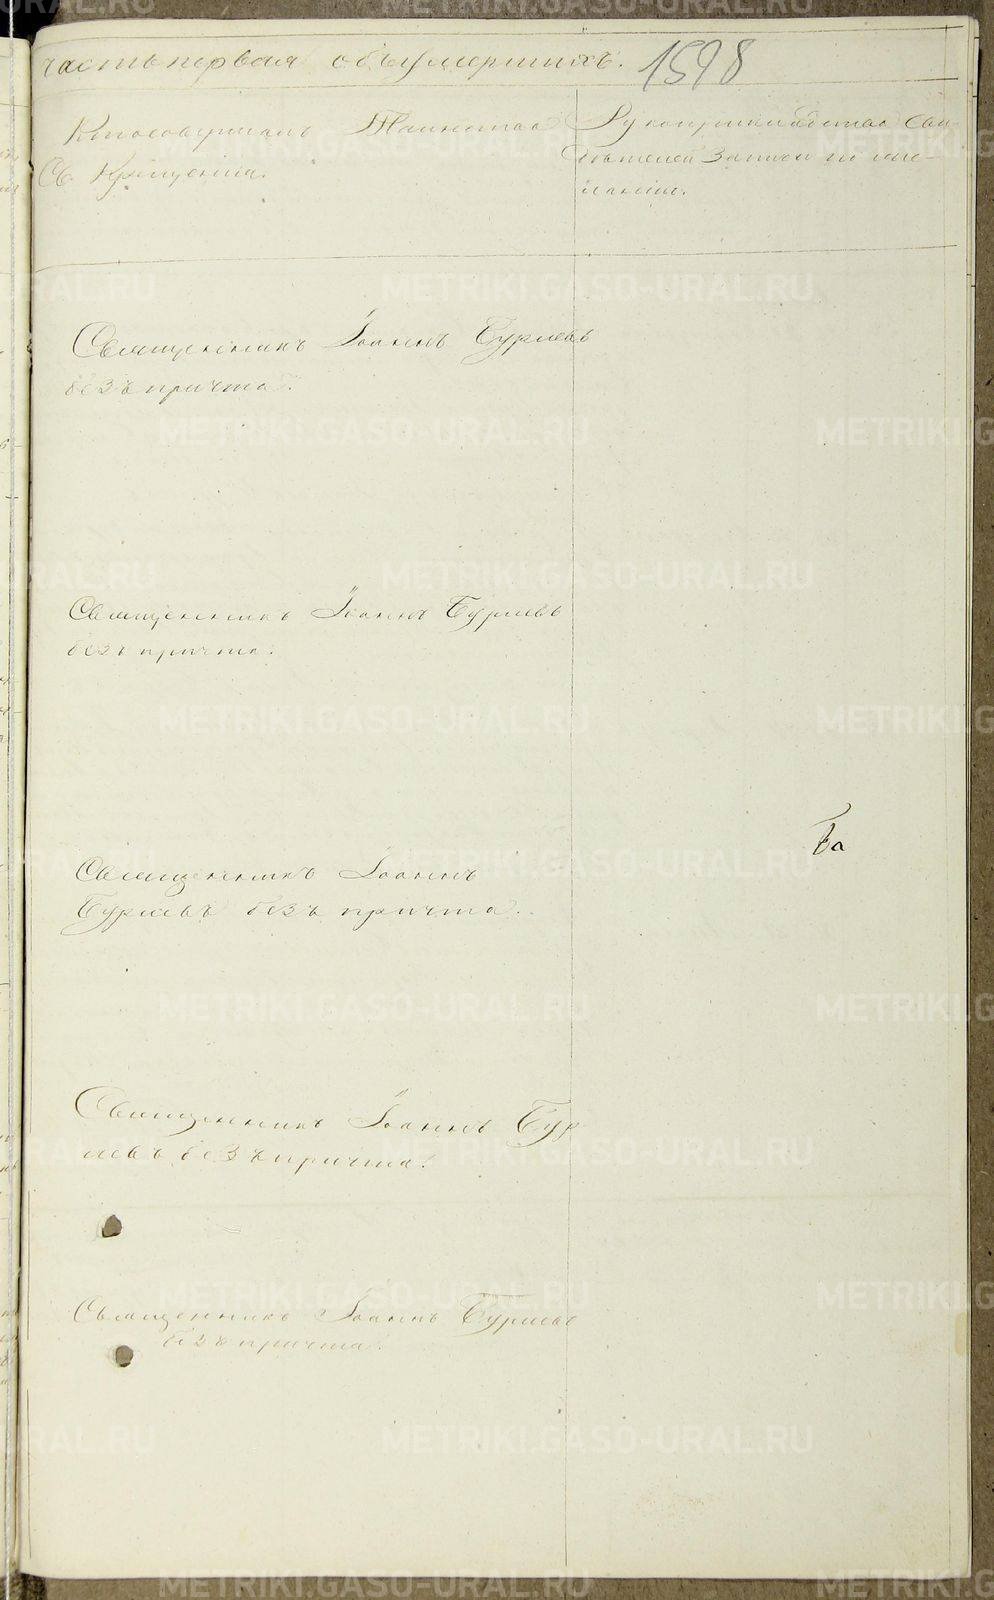 часть первая объ умершихъ. 1598
Кто совершалъ Таинство
Св. Крещенія.
Рукоприкладство сви-
дѣтелей записи по же-
ланію.
Священникъ Іоаннъ Бурмевъ
безъ причта.
Священникъ Іоаннъ Бурмевъ
безъ причта.
Священникъ Іоаннъ
Бурмевъ безъ причта.
Священникъ Іоаннъ Бур-
мевъ безъ причта.
Священникъ Іоаннъ Бурмевъ
безъ причта.
METRIKI.GASO-URAL.RU